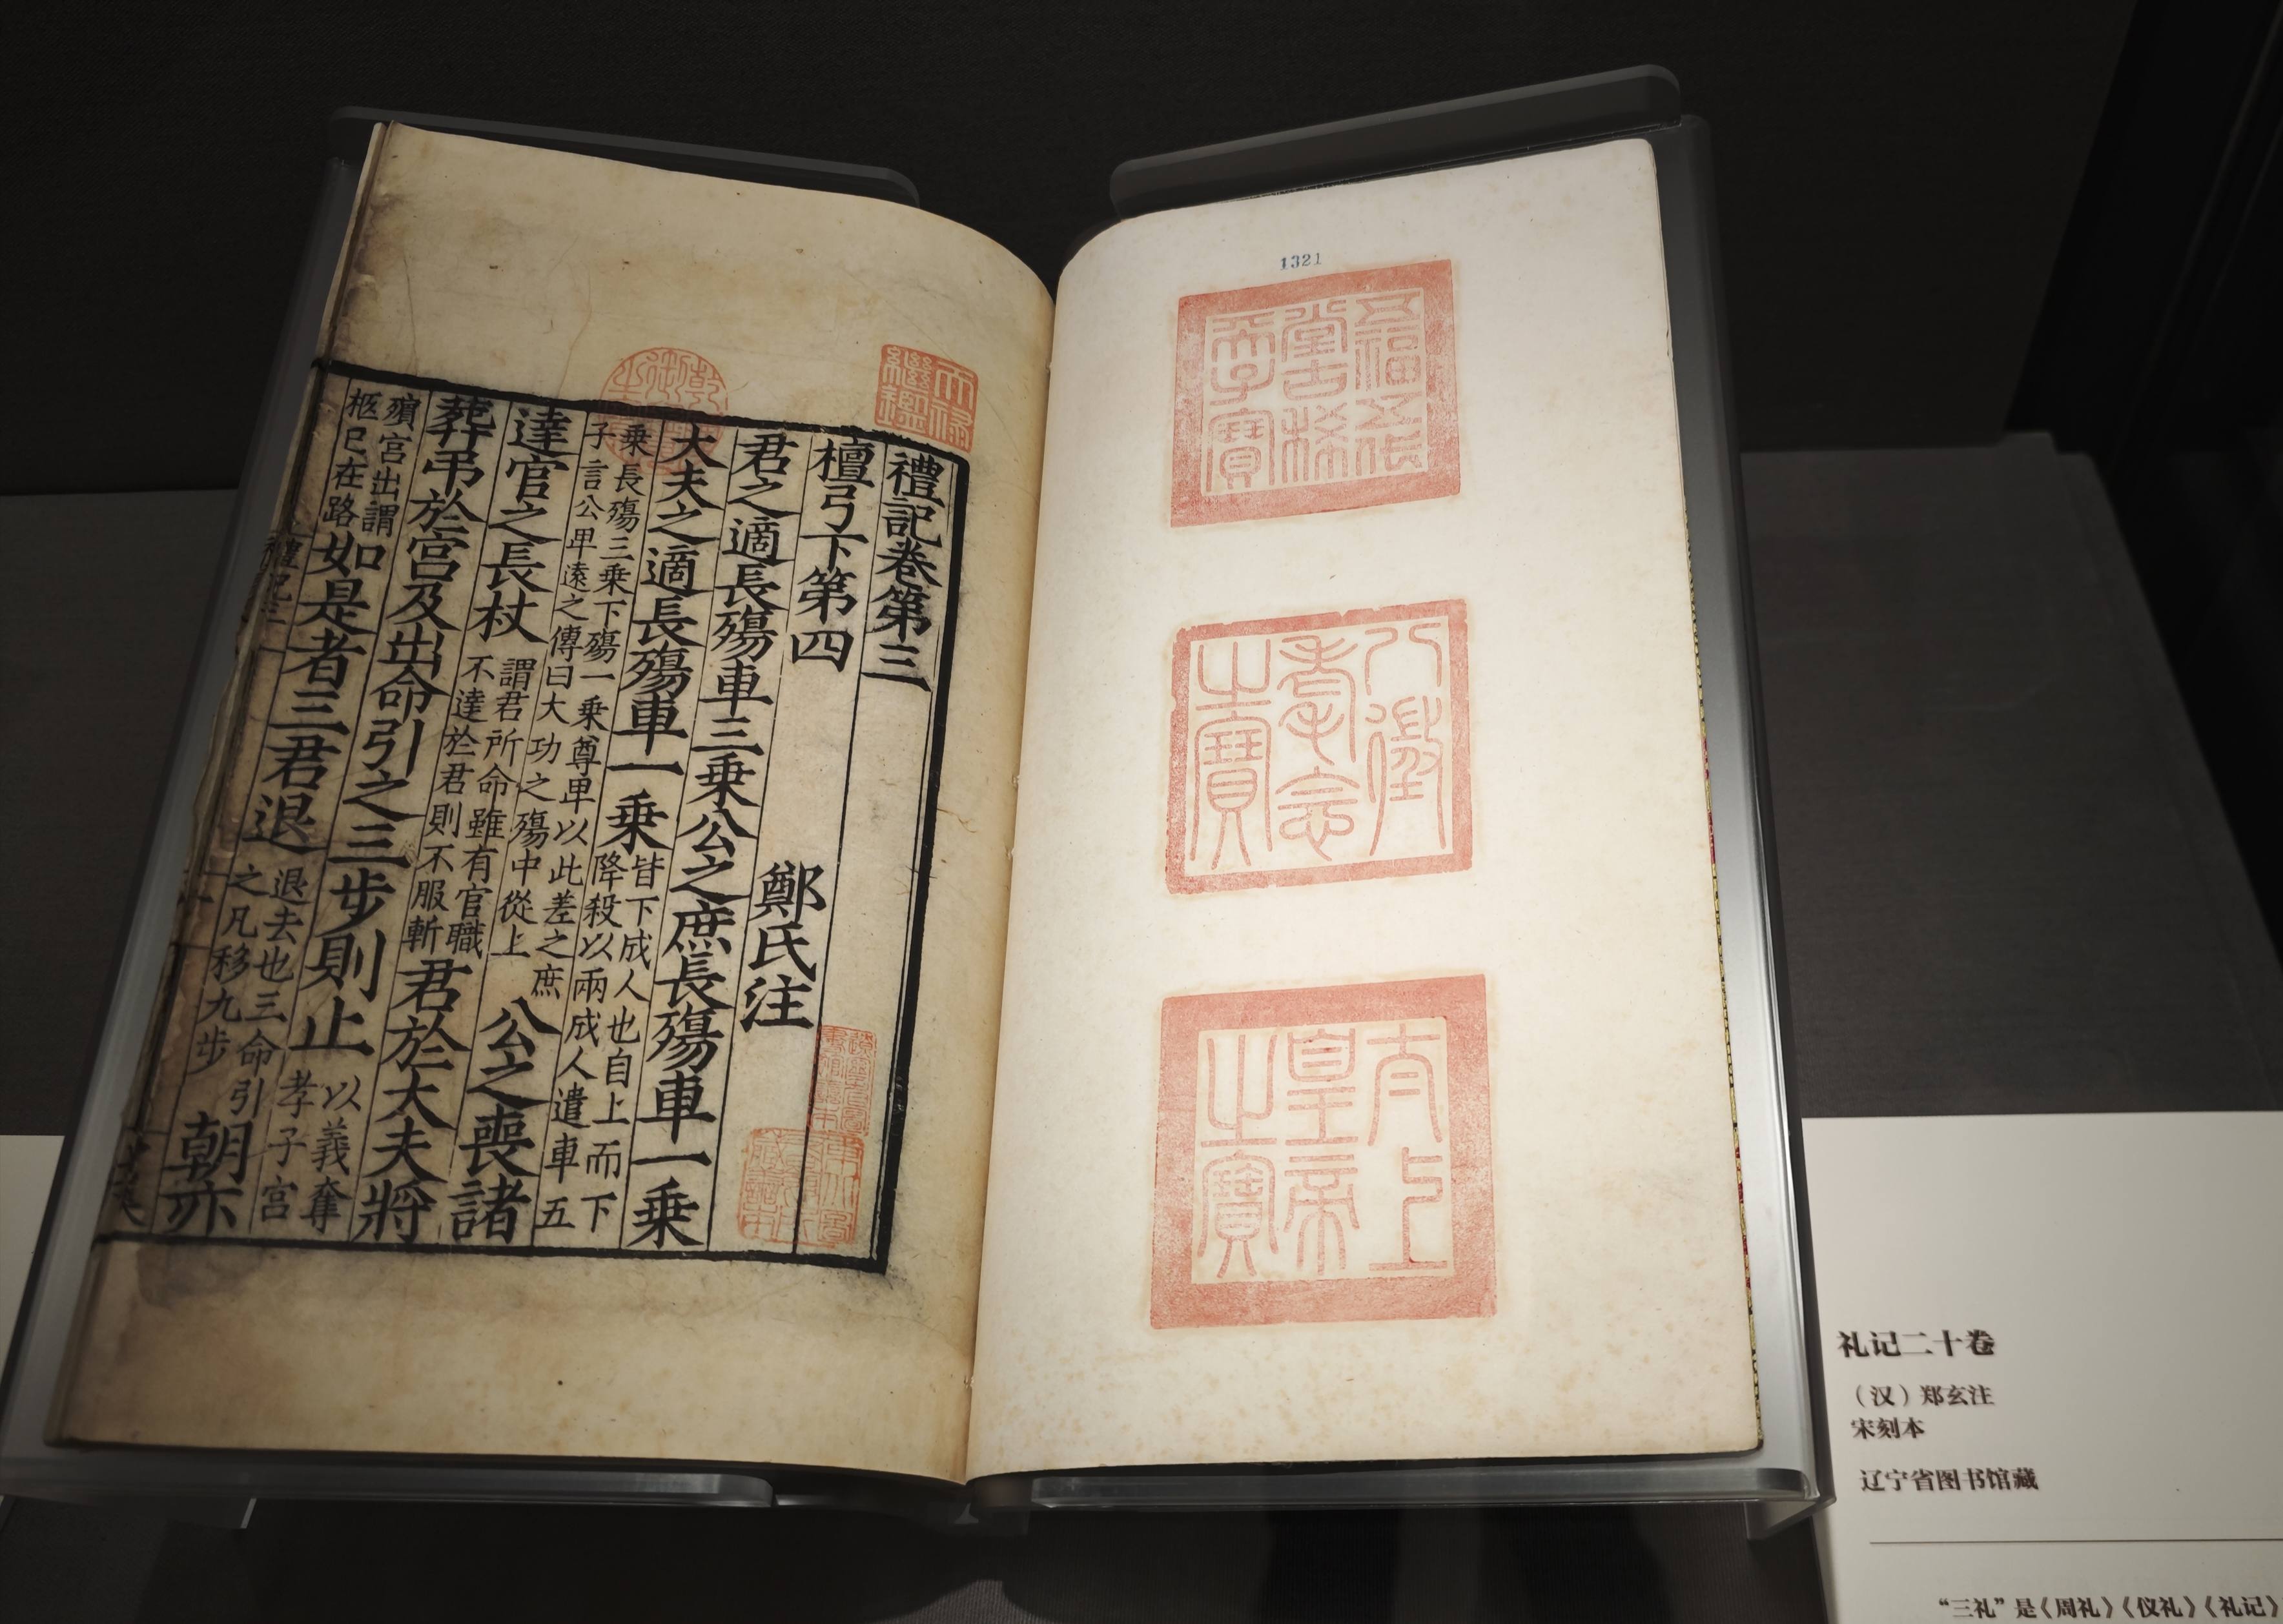 1321
五福五代堂古稀天子寶
八徵耄念之寶
太上皇帝之寶
天祿繼鑑
乾隆御覽之寶
禮記卷第三
檀弓下第四 鄭氏注
君之適長殤車三乗公之庶長殤車一乗
大夫之適長殤車一乗皆下成人也自上而下降殺以兩成人遣車五
乗長殤三乗下殤一乗尊卑以此差之庶子言公卑遠之傳曰大功之殤中從上公之喪諸
達官之長杖謂君所命雖有官職不達於君則不服斬君於大夫將
葬弔於宮及出命引之三步則止以義奪孝子宮
殯宮出謂柩已在路如是者三君退退去也三命引之凡移九步朝亦
礼记二十卷
（汉）郑玄注
宋刻本
辽宁省图书馆藏
“三礼”是《周礼》《仪礼》《礼记》